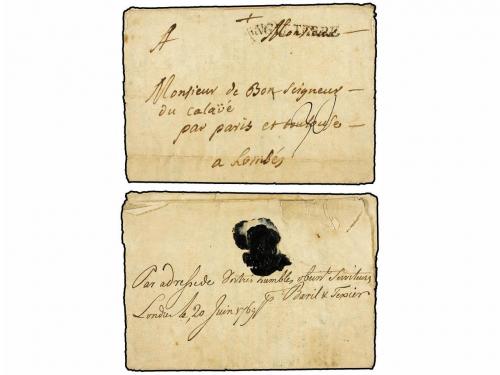 ANGLETERRE
A Monsieur
Monsieur de Bon Seigneur
du calavé
par paris et toulouse
a Lombés
Par adresse de Votres humbles obeint Serviteurs
Baril & Texier
Londres le, 20 Juin 1763